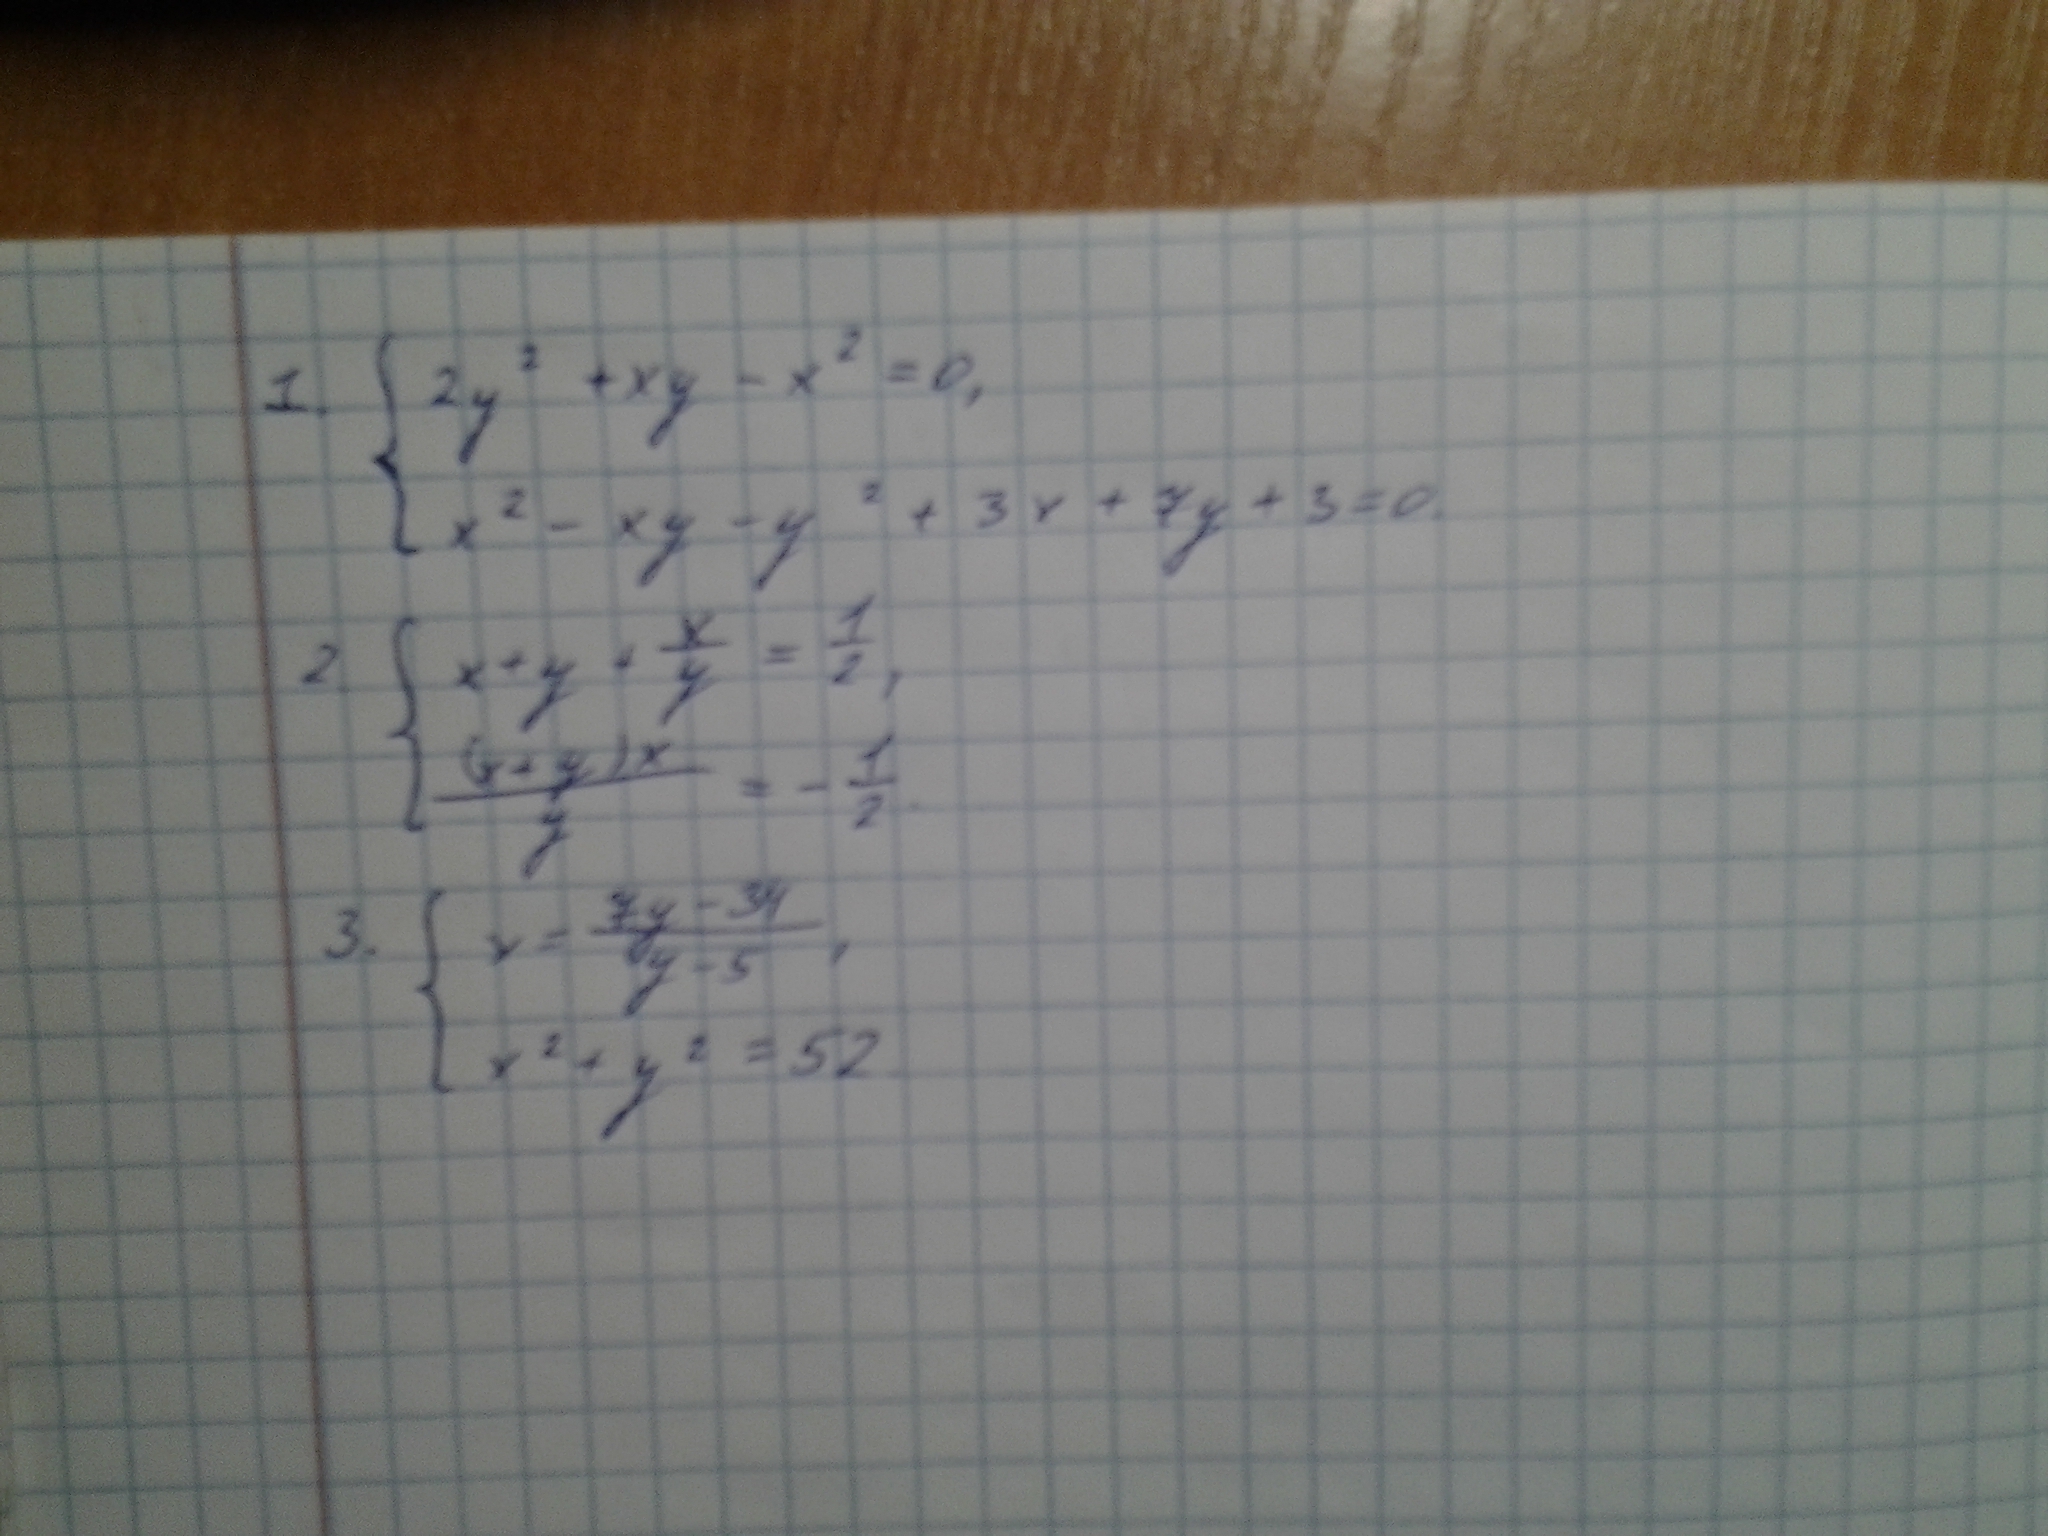 1. { 2y² + xy - x² = 0,
x² - xy - y² + 3x + 7y + 3 = 0.
2. { x + y + x/y = 1/2,
(x + y)x/y = -1/2.
3. { x = (7y - 34)/(y - 5),
x² + y² = 52